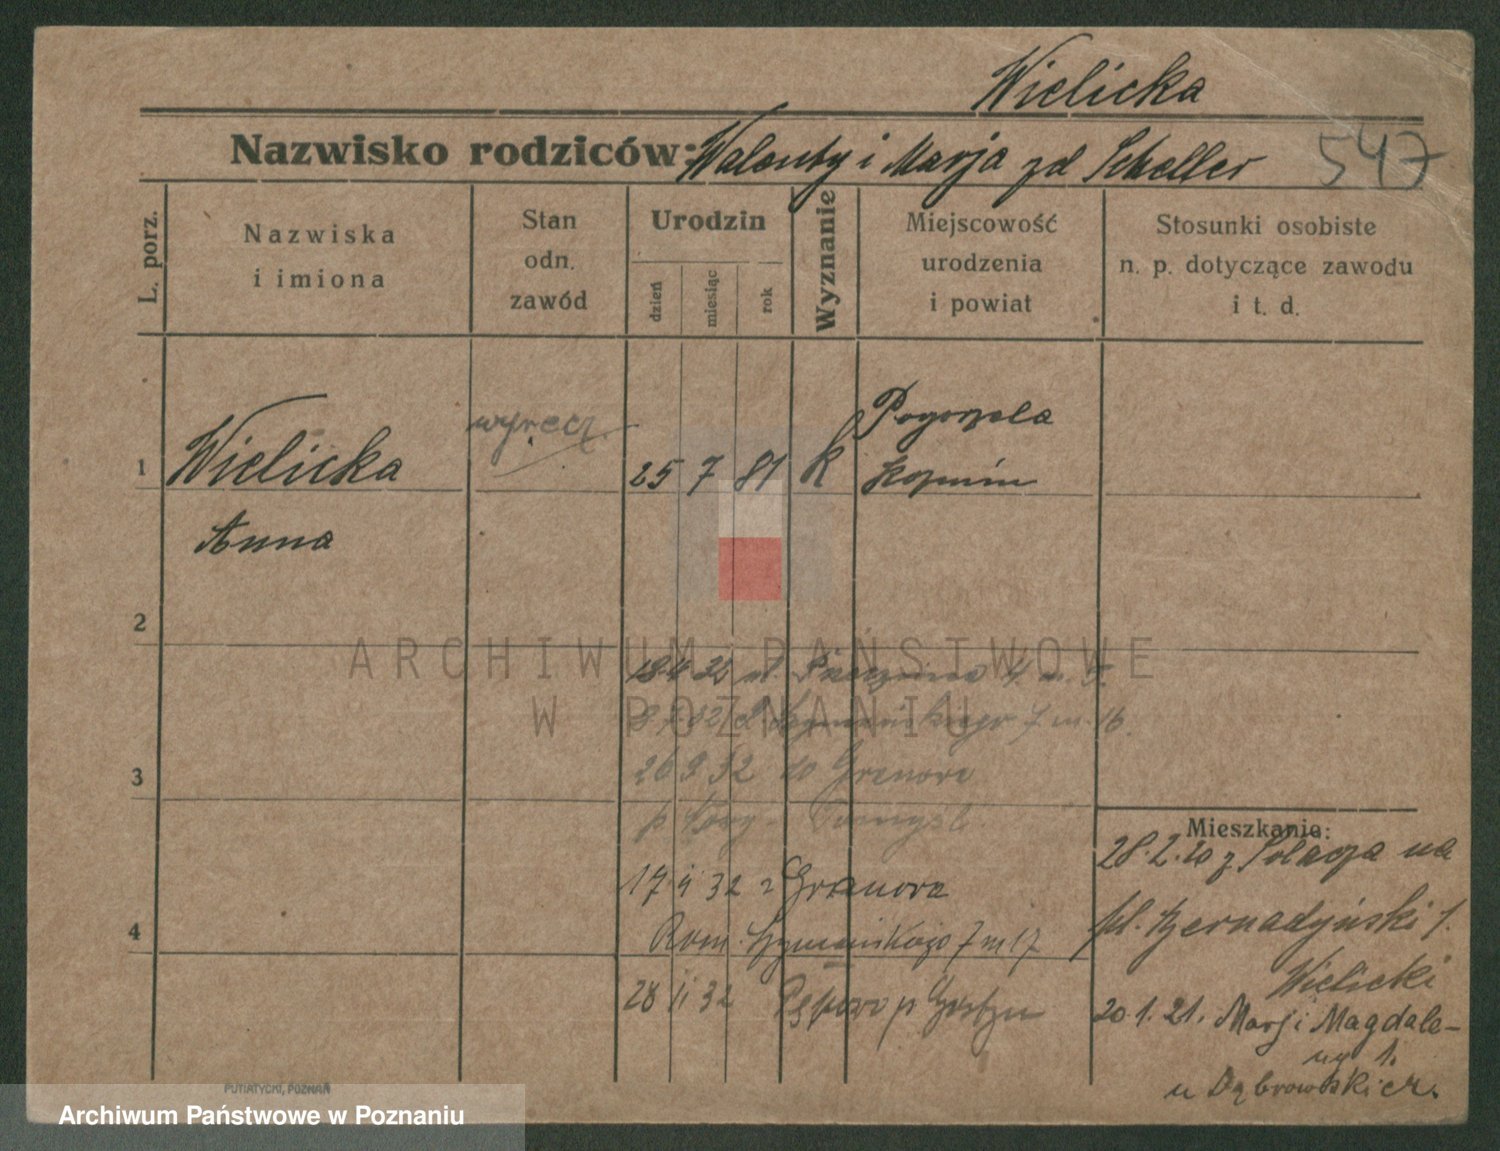 Wielicka
Nazwisko rodziców: Walenty i Marja zd Scheller
547
L. porz.
Nazwiska
i imiona
Stan
odn.
zawód
Urodzin
dzień
miesiąc
rok
Wyznanie
Miejscowość
urodzenia
i powiat
Stosunki osobiste
n. p. dotyczące zawodu
i t. d.
1
Wielicka
25 7 81 k
Pogorzela
Koźmin
Anna
2
ARCHIWUM PAŃSTWOWE
W POZNANIU
18 4 32
7 m 16.
3
26 9 32 do Granowa
17 32 z Granowa
4
Rom. Szymańskiego 7 m 17
28 32 p Gostyń
Mieszkanie:
28.2.20 z Sołacza na
pl. Bernadyński 1.
Wielicki
20.1.21. Marji Magdale-
ny 1.
u Dąbrowskiej.
PUTIATYCKI, POZNAŃ
Archiwum Państwowe w Poznaniu